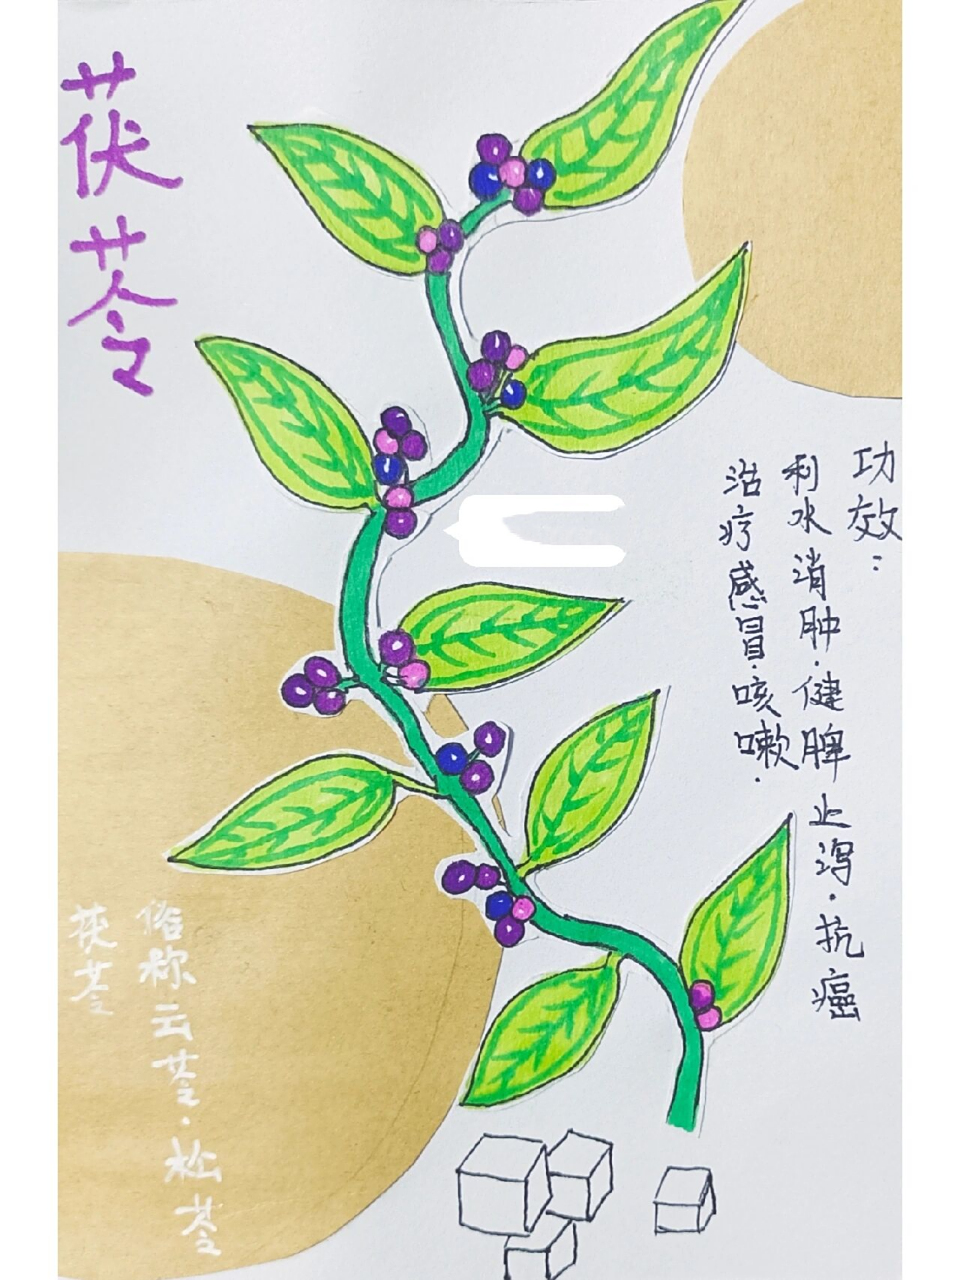 茯苓
功效：
利水消肿.健脾止泻.抗癌
治疗感冒.咳嗽.
俗称云苓.松苓
茯苓